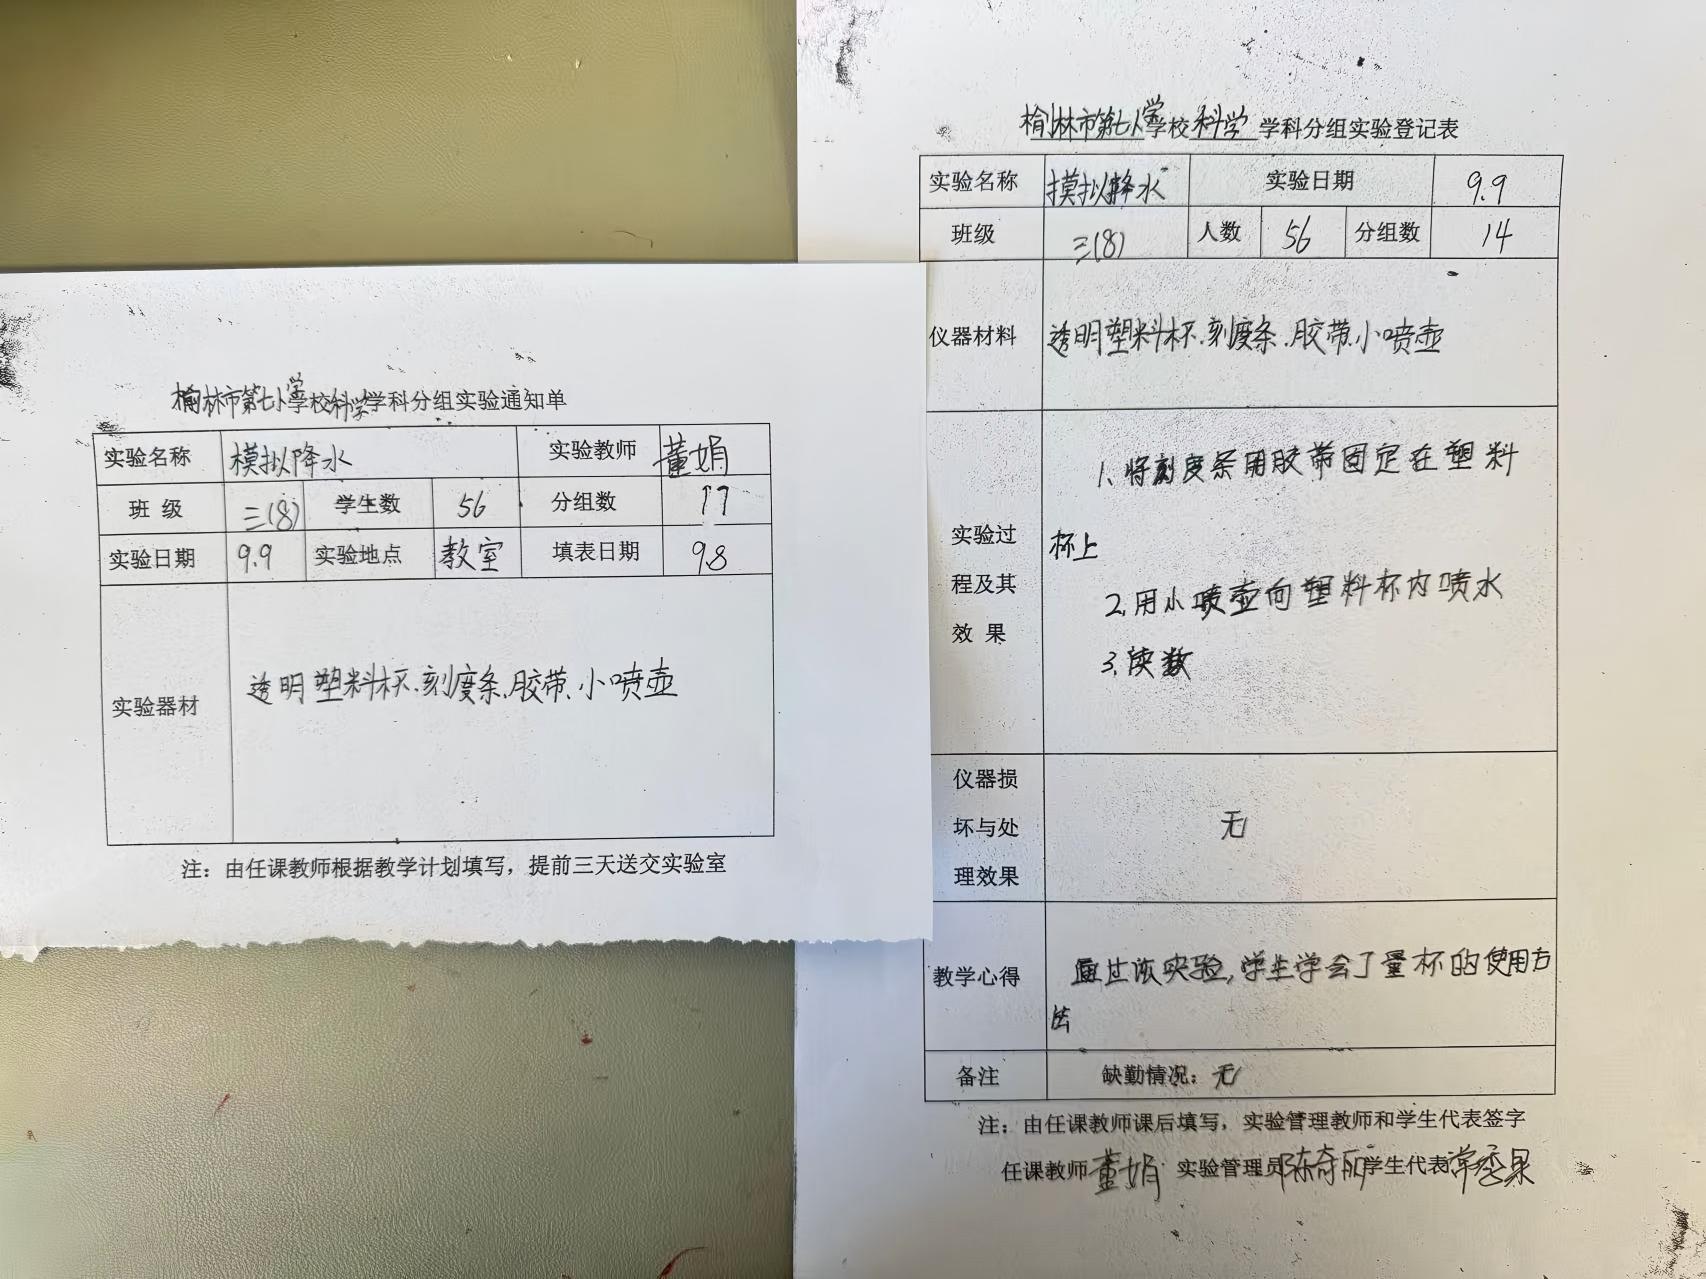 榆林市第七小学学校科学学科分组实验通知单
实验名称 模拟降水 实验教师 董娟
班 级 三(8) 学生数 56 分组数 17
实验日期 9.9 实验地点 教室 填表日期 9.8
实验器材 透明塑料杯、刻度条、胶带、小喷壶
注：由任课教师根据教学计划填写，提前三天送交实验室
榆林市第七小学学校科学 学科分组实验登记表
实验名称 模拟降水 实验日期 9.9
班级 三(8) 人数 56 分组数 14
仪器材料 透明塑料杯、刻度条、胶带、小喷壶
实验过
程及其
效 果
1、将刻度条用胶带固定在塑料
杯上
2、用小喷壶向塑料杯内喷水
3、读数
仪器损
坏与处
理效果
无
教学心得 通过该实验,学生学会了量杯的使用方
法
备注 缺勤情况：无
注：由任课教师课后填写，实验管理教师和学生代表签字
任课教师 董娟 实验管理员 学生代表